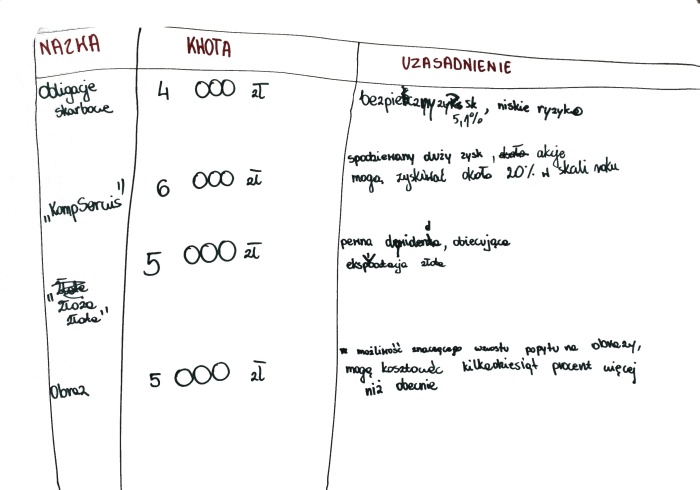 NAZWA KWOTA UZASADNIENIE
Obligacje
skarbowe
4 000 zł
bezpieczny zysk, niskie ryzyko
5,1%
"KompSerwis"
6 000 zł
spodziewany duży zysk, akcje
mogą zyskiwać około 20% w skali roku
"Złoża
Złota"
5 000 zł
pewna dywidenda, obiecująca
eksploatacja złota
Obraz
5 000 zł
możliwość znaczącego wzrostu popytu na obrazy,
mogą kosztować kilkadziesiąt procent więcej
niż obecnie